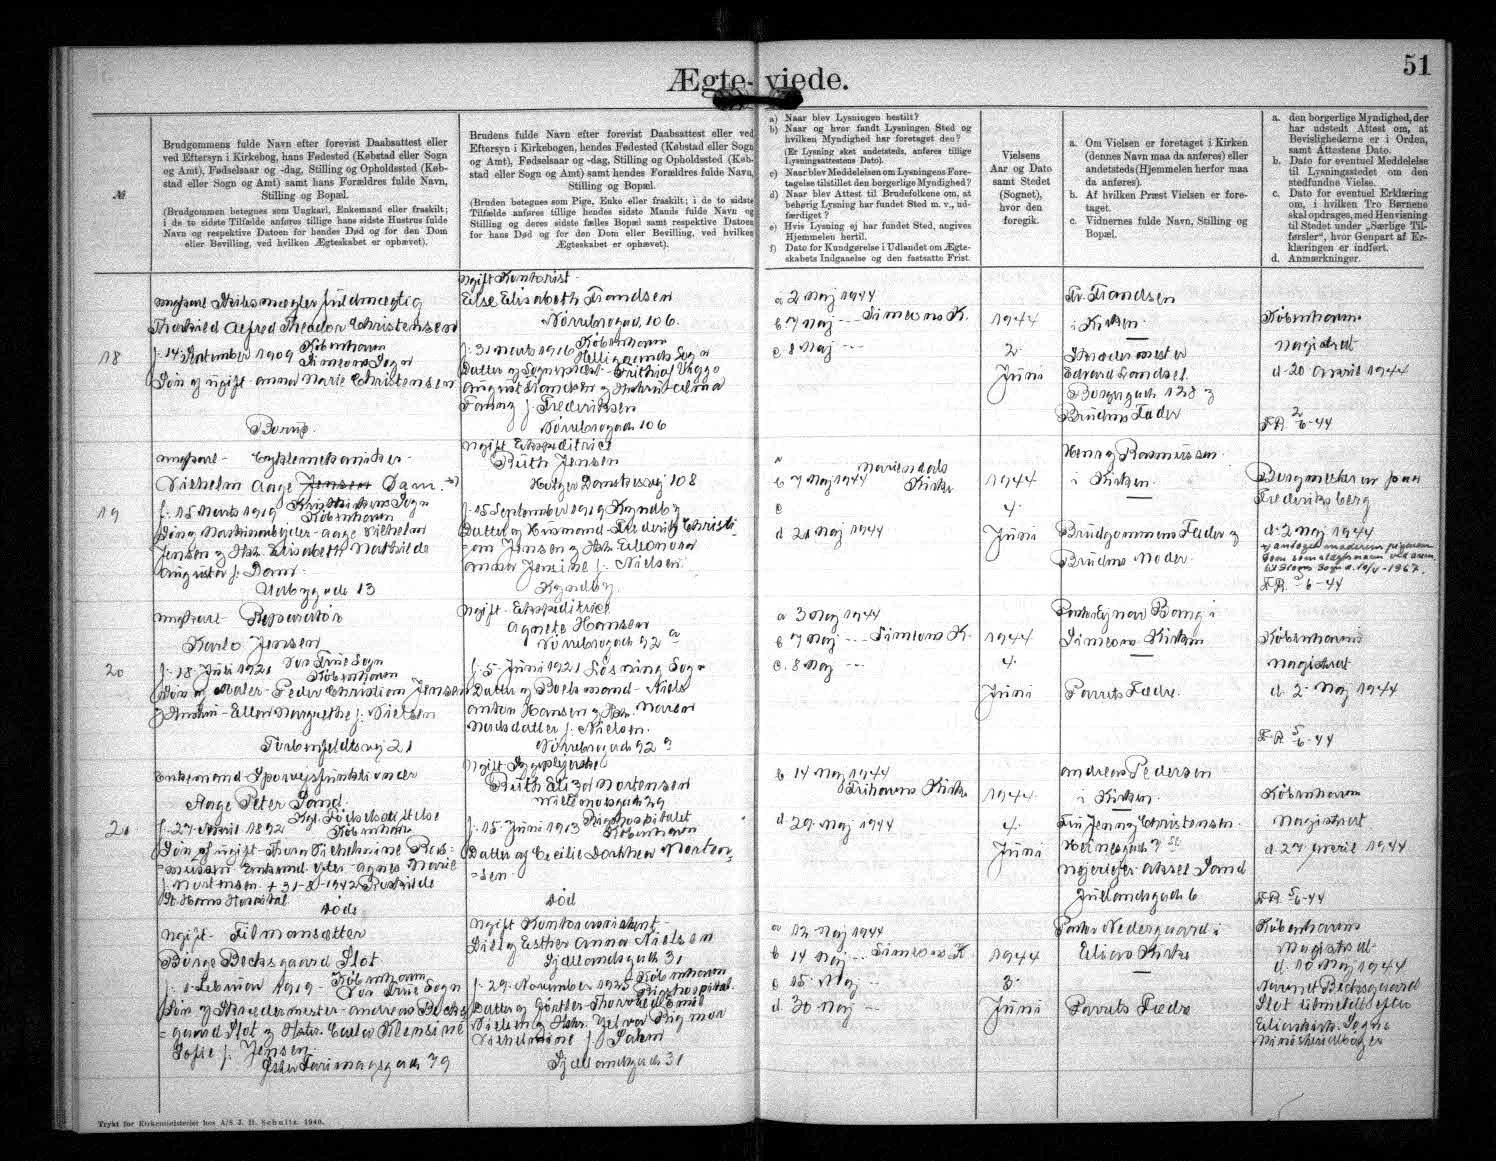 Ægte-viede.
51
№
Brudgommens fulde Navn efter forevist Daabsattest eller
ved Eftersyn i Kirkebog, hans Fødested (Købstad eller Sogn
og Amt), Fødselsaar og -dag, Stilling og Opholdssted (Køb-
stad eller Sogn og Amt) samt hans Forældres fulde Navn,
Stilling og Bopæl.
(Brudgommen betegnes som Ungkarl, Enkemand eller fraskilt;
i de to sidste Tilfælde anføres tillige hans sidste Hustrus fulde
Navn og respektive Datoen for hendes Død og for den Dom
eller Bevilling, ved hvilken Ægteskabet er ophævet).
Brudens fulde Navn efter forevist Daabsattest eller ved
Eftersyn i Kirkebogen, hendes Fødested (Købstad eller Sogn
og Amt), Fødselsaar og -dag, Stilling og Opholdssted (Køb-
stad eller Sogn og Amt) samt hendes Forældres fulde Navn,
Stilling og Bopæl.
(Bruden betegnes som Pige, Enke eller fraskilt; i de to sidste
Tilfælde anføres tillige hendes sidste Mands fulde Navn og
Stilling og deres sidste fælles Bopæl samt respektive Datoen
for hans Død og for den Dom eller Bevilling, ved hvilken
Ægteskabet er ophævet).
a) Naar blev Lysningen bestilt?
b) Naar og hvor fandt Lysningen Sted og
hvilken Myndighed har foretaget den?
(Er Lysning sket andetsteds, anføres tillige
Lysningsattestens Dato).
c) Naar blev Meddelelsen om Lysningens Fore-
tagelse tilstillet den borgerlige Myndighed?
d) Naar blev Attest til Brudefolkene om, at
behørig Lysning har fundet Sted m. v., ud-
færdiget?
e) Hvis Lysning ej har fundet Sted, angives
Hjemmelen hertil.
f) Dato for Kundgørelse i Udlandet om Ægte-
skabets Indgaaelse og den fastsatte Frist.
Vielsens
Aar og Dato
samt Stedet
(Sognet),
hvor den
foregik.
a. Om Vielsen er foretaget i Kirken
(dennes Navn maa da anføres) eller
andetsteds (Hjemmelen herfor maa
da anføres).
b. Af hvilken Præst Vielsen er fore-
taget.
c. Vidnernes fulde Navn, Stilling og
Bopæl.
a. den borgerlige Myndighed, der
har udstedt Attest om, at
Bevislighederne er i Orden,
samt Attestens Dato.
b. Dato for eventuel Meddelelse
til Lysningsstedet om den
stedfundne Vielse.
c. Dato for eventuel Erklæring
om, i hvilken Tro Børnene
skal opdrages, med Henvisning
til Stedet under „Særlige Til-
førsler“, hvor Genpart af Er-
klæringen er indført.
d. Anmærkninger.
18
Thorkild Alfred Theodor Christensen
f. 14. September 1909 København
Simeons Sogn
Søn af ugift Anna Marie Christensen
Borup.
ugift Kontorist
Else Elisabeth Frandsen
Nørrebrogade 106.
f. 31 Marts 1916 København
Helligaands Sogn
Fanny f. Frederiksen
Nørrebrogade 106
a 2 Maj 1944
b 7 Maj --- Simeons K.
c. 8 Maj ---
1944
2.
Juni
Fr. Frandsen
i Kirken.
Skrædermester
Brudens Fader
Københavns
Magistrat
d. 20 April 1944
F.R. 2/6-44
19
Ungkarl - Cyklemekaniker -
Vilhelm Aage Jensen Dam.
f. 15 Marts 1919 København
Jensen og Hstr. Elisabeth Mathilde
Augusta f. Dam.
Udbygade 13
ugift Ekspeditrice
Ruth Jensen
Holger Danskesvej 108
f. 15 September 1919 Kyndby
Datter af Husmand Frederik Christi-
an Jensen og Hstr. Eleonora
Anna Jensine f. Nielsen
Kyndby.
a
b 7 Maj 1944 Mariendals
Kirke
c
d 21 Maj 1944
1944
4.
Juni
Henry Rasmussen
i Kirken.
Brudgommens Fader og
Brudens Moder.
Frederiksberg
d. 2 Maj 1944
F.R. 5/6-44
20
Ungkarl Reparatør
Karlo Jensen
f. 18. Juli 1921 Vor Frue Sogn
København
Søn af Maler - Peder Christian Jensen
og Hustru - Ellen Margrethe f. Nielsen
Torbenfeldtsvej 21
ugift - Ekspeditrice
Agnete Hansen
Nørrebrogade 92 a
f. 5. Juni 1921 Løsning Sogn
Datter af Boelsmand - Niels
Anton Hansen og Hstr. Maren
f. Nielsen.
Nørrebrogade 92 a
a 3 Maj 1944
b 7 Maj --- Simeons K.
c. 8 Maj ---
1944
4.
Juni
Pastor Ejnar Bang i
Simeons Kirken
Parrets Fædre.
Københavns
Magistrat
d. 2. Maj 1944
F.R. 5/6-44
21
Enkemand - Sporvejsfunktionær
Aage Peter Sand.
f. 27. April 1892 Kgl. Fødselsstiftelse
København
Søn af ugift Thora Vilhelmine Ras-
mussen. Enkemand efter Agnes Marie
f. Mortensen. + 31-8-1942 Roskilde
St Hans Hospital
Død
ugift Sygeplejerske
Ruth Elized Mortensen
Willemoesgade 29
f. 15. Juni 1913 Rigshospitalet
København
Datter af Cecilie Dorthea Morten-
sen.
død
b 14 Maj 1944
Frihavns Kirke
d. 29. Maj 1944
1944.
4.
Juni
Andreas Pedersen
i Kirken.
Fru Jenny Christensen.
Aksel Sand
Jyllandsgade 6
Københavns
Magistrat
d. 27 April 1944
F.R. 5/6-44
ugift - Filmansætter
Børge Bechsgaard Slot.
f. 1. Februar 1919 - København
Vor Frue Sogn
Søn af Skrædermester - Andreas Bechs-
gaard Slot og Hstr. Carla Klensine
Sofie f. Jensen.
Øster Farimagsgade 79
ugift Kontorassistent -
Dessy Esther Anna Nielsen
Sjællandsgade 31
f. 29. November 1925 København
Rigshospital.
Datter af Gørtler - Thorvald Emil
Nielsen og Hstr.
Vilhelmine f. Palm
Sjællandsgade 31
a 12 Maj 1944
b 14 Maj --- Simeons K.
c 15. Maj ---
d. 30 Maj ---
1944
3.
Juni
Pastor Nedergaard i
Elias Kirke
Parrets Fædre
Københavns
Magistrat
d. 10 Maj 1944
Navnet Bechsgaard
Slot tilmeldt efter
Eliaskirk. Sogns
Ministerialbøger
Trykt for Kirkeministeriet hos A/S J. H. Schultz. 1940.